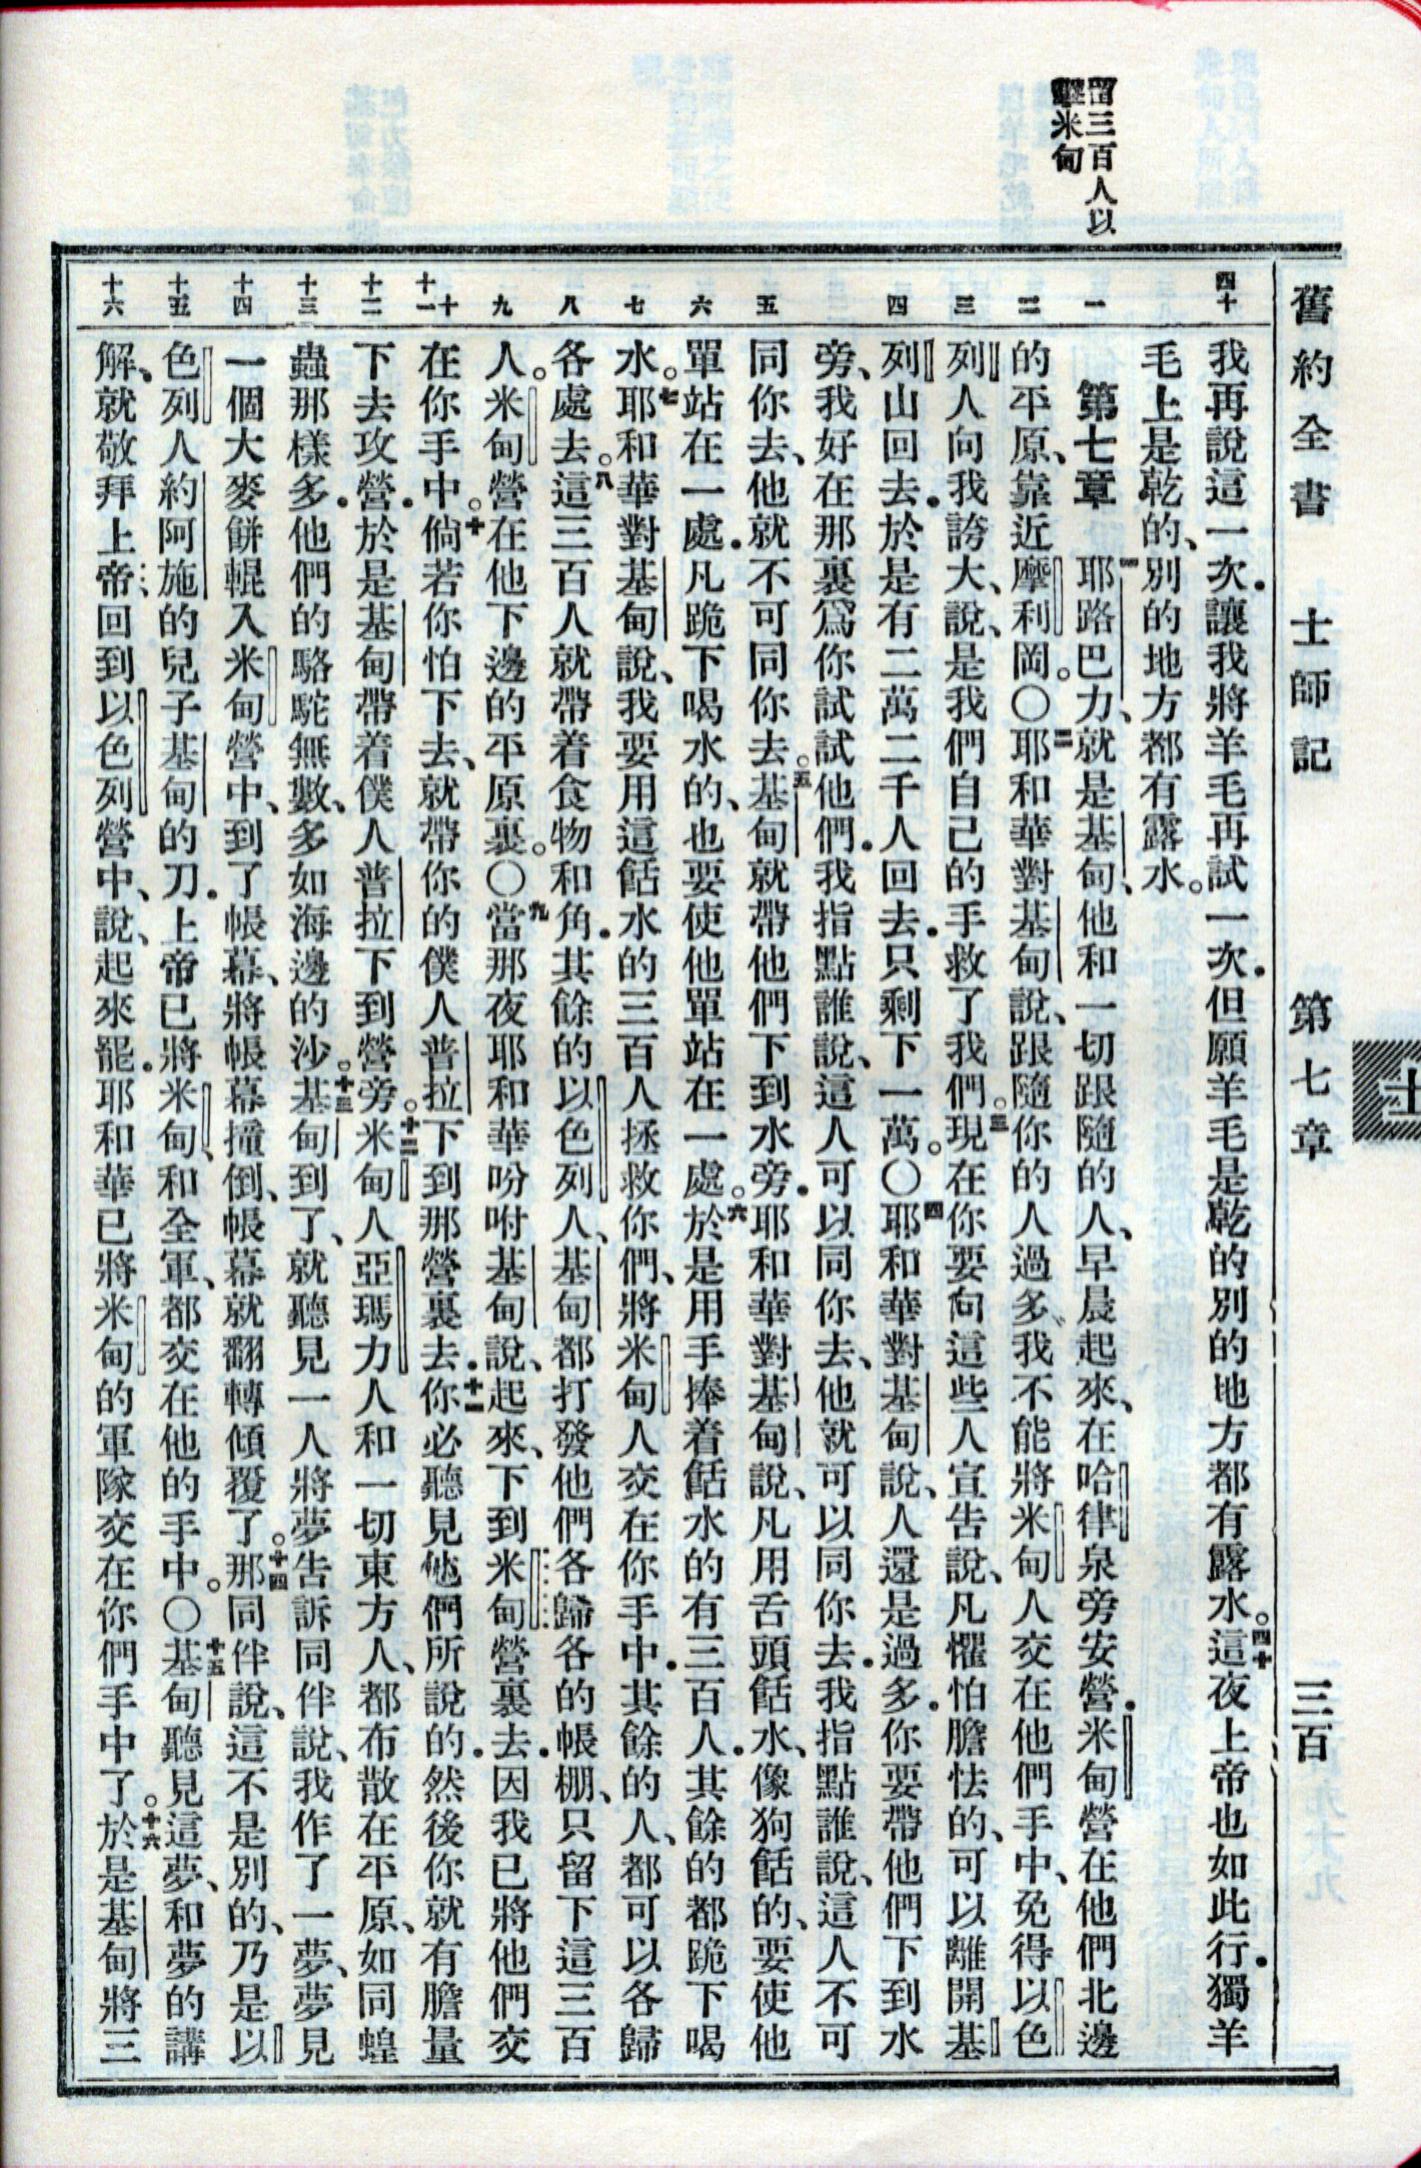 留三百人以
米甸
舊約全書　士師記　第七章　三百
士
四十
我再說這一次．讓我將羊毛再試一次．但願羊毛是乾的別的地方都有露水。四十這夜上帝也如此行．獨羊
毛上是乾的、別的地方都有露水。
一
第七章　一耶路巴力、就是基甸、他和一切跟隨的人、早晨起來、在哈律泉旁安營．米甸營在他們北邊
二
的平原、靠近摩利岡。〇二耶和華對基甸說、跟隨你的人過多、我不能將米甸人交在他們手中、免得以色
三
列人向我誇大、說、是我們自己的手救了我們。三現在你要向這些人宣告說、凡懼怕膽怯的、可以離開基
四
列山回去．於是有二萬二千人回去．只剩下一萬。〇四耶和華對基甸說、人還是過多．你要帶他們下到水
旁、我好在那裏爲你試試他們．我指點誰說、這人可以同你去、他就可以同你去．我指點誰說、這人不可
五
同你去、他就不可同你去。五基甸就帶他們下到水旁．耶和華對基甸說、凡用舌頭餂水、像狗餂的、要使他
六
單站在一處．凡跪下喝水的、也要使他單站在一處。六於是用手捧着餂水的有三百人．其餘的都跪下喝
七
水。七耶和華對基甸說、我要用這餂水的三百人拯救你們、將米甸人交在你手中．其餘的人、都可以各歸
八
各處去。八這三百人就帶着食物和角．其餘的以色列人、基甸都打發他們各歸各的帳棚、只留下這三百
九
人。米甸營在他下邊的平原裏。〇九當那夜耶和華吩咐基甸說、起來、下到米甸營裏去．因我已將他們交
十
十一
在你手中。十倘若你怕下去、就帶你的僕人普拉下到那營裏去．十一你必聽見他們所說的．然後你就有膽量
十二
下去攻營．於是基甸帶着僕人普拉下到營旁。十二米甸人亞瑪力人和一切東方人、都布散在平原、如同蝗
十三
蟲那樣多．他們的駱駝無數、多如海邊的沙。十三基甸到了、就聽見一人將夢告訴同伴說、我作了一夢、夢見
十四
一個大麥餅輥入米甸營中、到了帳幕、將帳幕撞倒、帳幕就翻轉傾覆了。十四那同伴說、這不是別的、乃是以
十五
色列人約阿施的兒子基甸的刀．上帝已將米甸、和全軍、都交在他的手中。〇十五基甸聽見這夢、和夢的講
十六
解、就敬拜上帝．回到以色列營中、說、起來罷．耶和華已將米甸的軍隊交在你們手中了。十六於是基甸將三